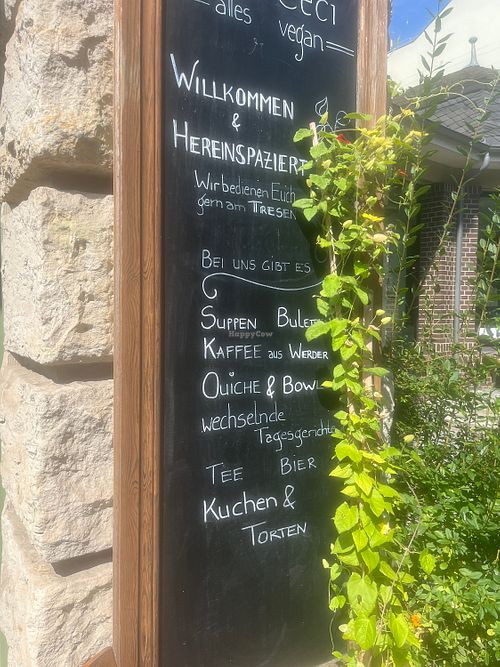 CECI
alles vegan
WILLKOMMEN
&
HEREINSPAZIERT
Wir bedienen Euch
gern am TRESEN
BEI UNS GIBT ES
SUPPEN BULET
KAFFEE aus WERDER
QUICHE & BOWL
wechselnde
Tagesgerichte
TEE BIER
Kuchen &
TORTEN
HappyCow